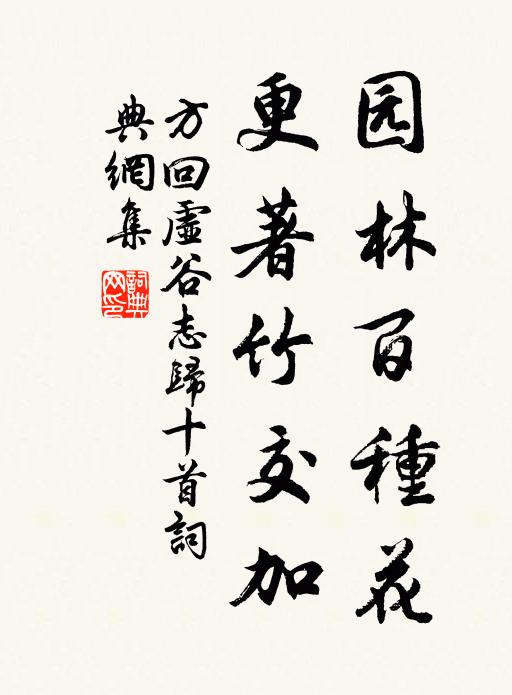 园林百種花
更著竹交加
方回虛谷志歸十首詞
典網集
詞典网印